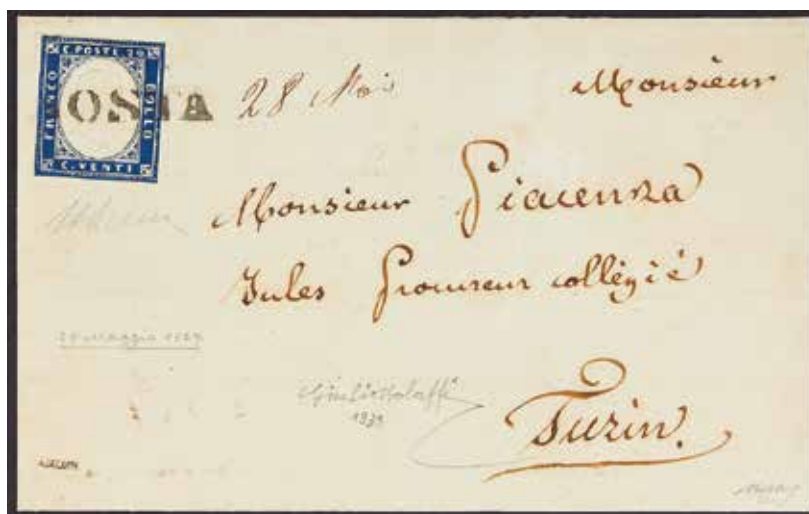 C. POSTE. 20
FRANCO
BOLLO
C. VENTI
OSTA
28 Mai
Monsieur
Monsieur Piacenza
Jules Procureur collégié
Turin.
Giulio Bolaffi
1939